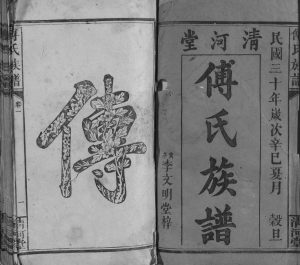 民國三十年歲次辛巳夏月 穀旦
清河堂
傅氏族譜
李文明堂梓
傅
傅氏族譜
卷一
一
清河堂